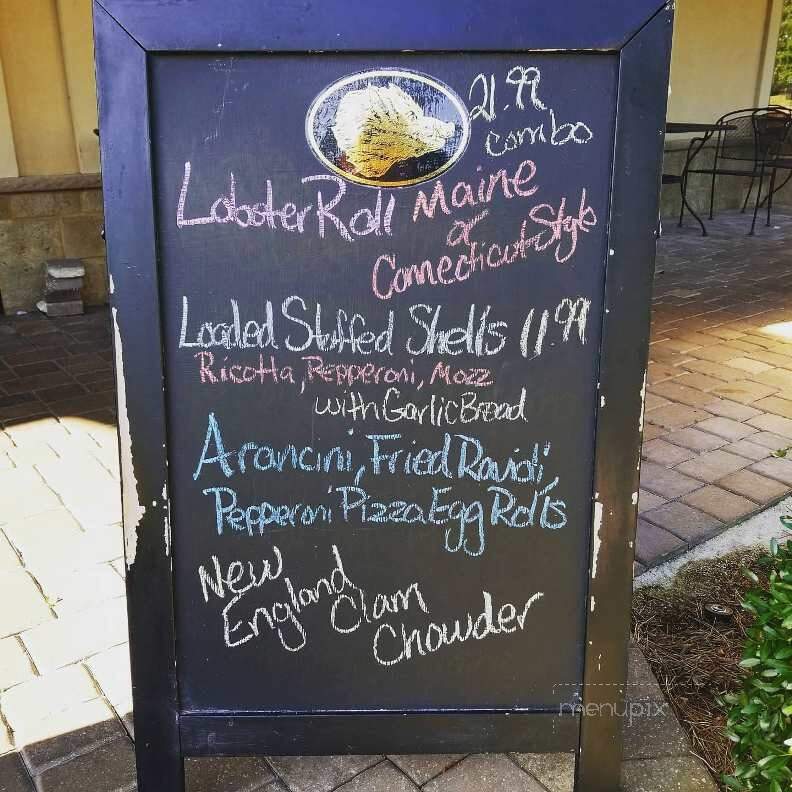 21.99
combo
Lobster Roll Maine
or
Connecticut Style
Loaded Stuffed Shells 11.99
Ricotta, Pepperoni, Mozz
with Garlic Bread
Arancini, Fried Ravioli,
Pepperoni Pizza Egg Rolls
New
England
Clam
Chowder
menupix